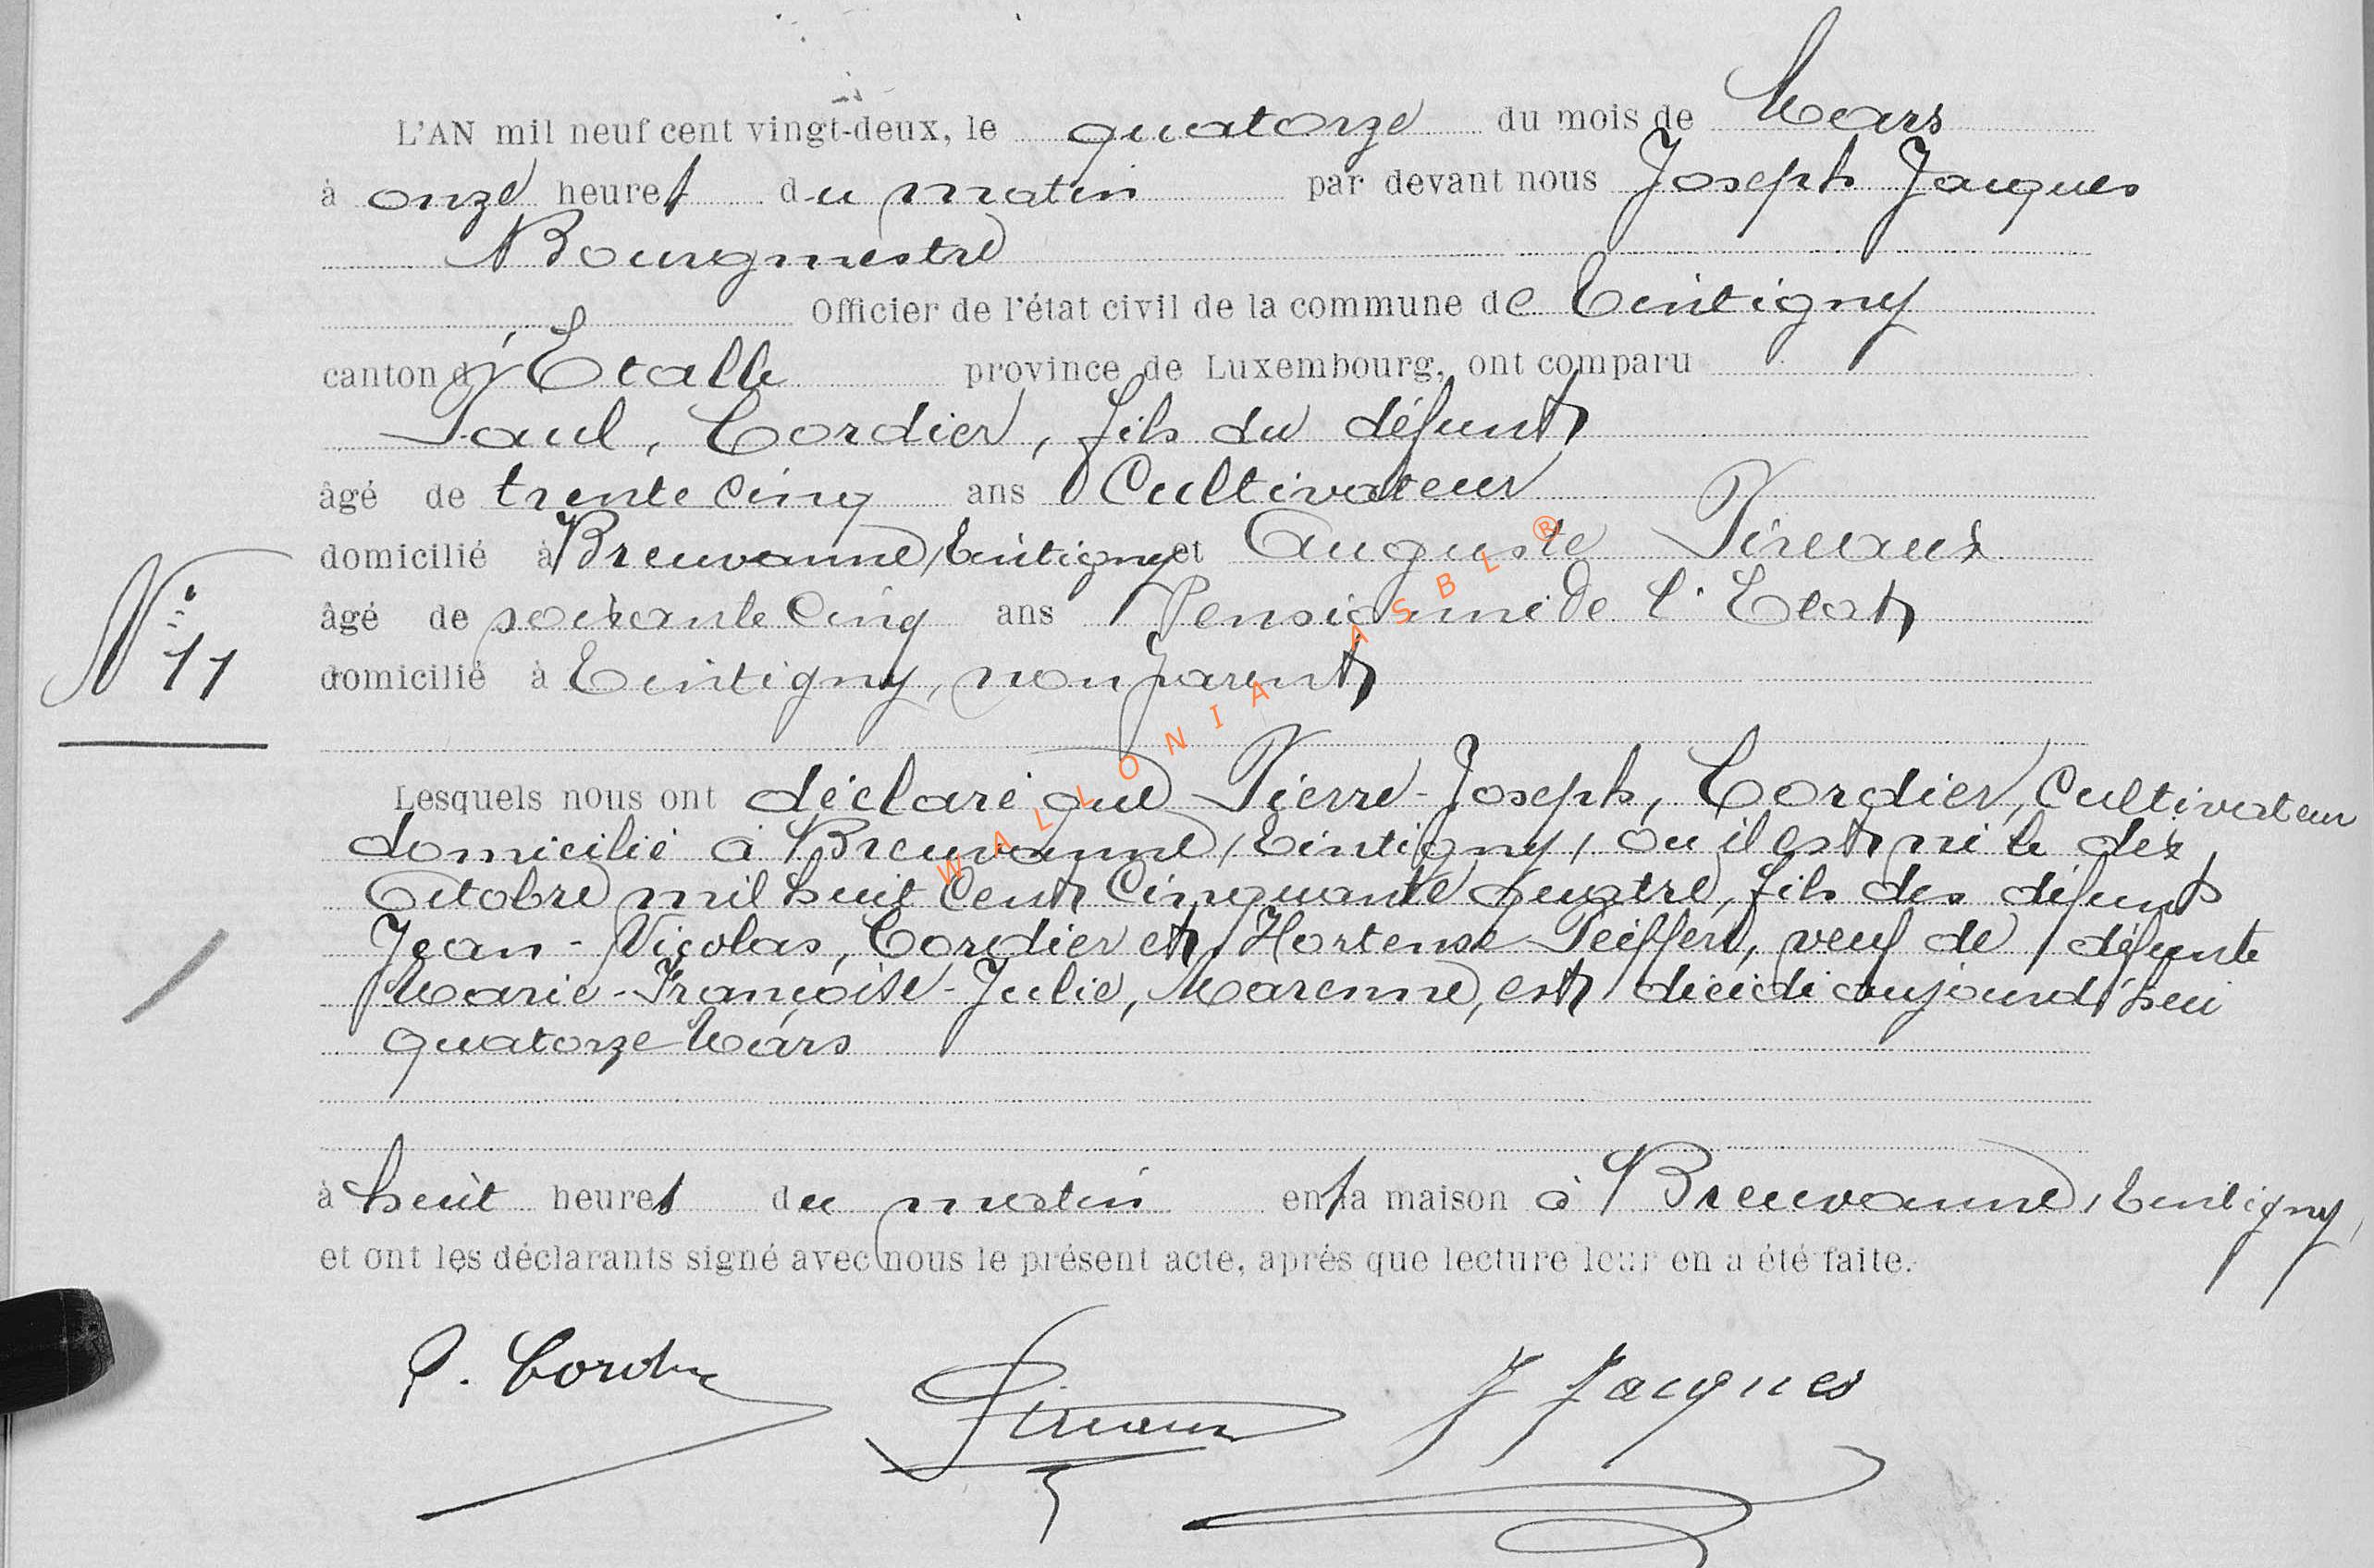 L'AN mil neuf cent vingt-deux, le quatorze du mois de Mars
à onze heures du matin par devant nous Joseph Jacques
Bourgmestre
Officier de l'état civil de la commune de Tintigny
canton d'Etalle province de Luxembourg, ont comparu
Paul, Cordier, fils du défunt
âgé de trente cinq ans Cultivateur
domicilié à Breuvanne, Tintigny et Auguste Pireaux
âgé de soixante cinq ans Pensionné de l'Etat
domicilié à Tintigny, non parent
N° 11
Lesquels nous ont déclaré que Pierre-Joseph, Cordier, Cultivateur
domicilié à Breuvanne, Tintigny, où il est né le dix
Octobre mil huit cent cinquante quatre, fils des défunts
Jean-Nicolas, Cordier et Hortense Peiffer, veuf de défunte
Marie-Françoise-Julie, Marenne, est décédé aujourd'hui
quatorze Mars
à huit heures du matin en sa maison à Breuvanne, Tintigny,
et ont les déclarants signé avec nous le présent acte, après que lecture leur en a été faite.
P. Cordier Pireaux J Jacques
WALLONIA ASBL ®